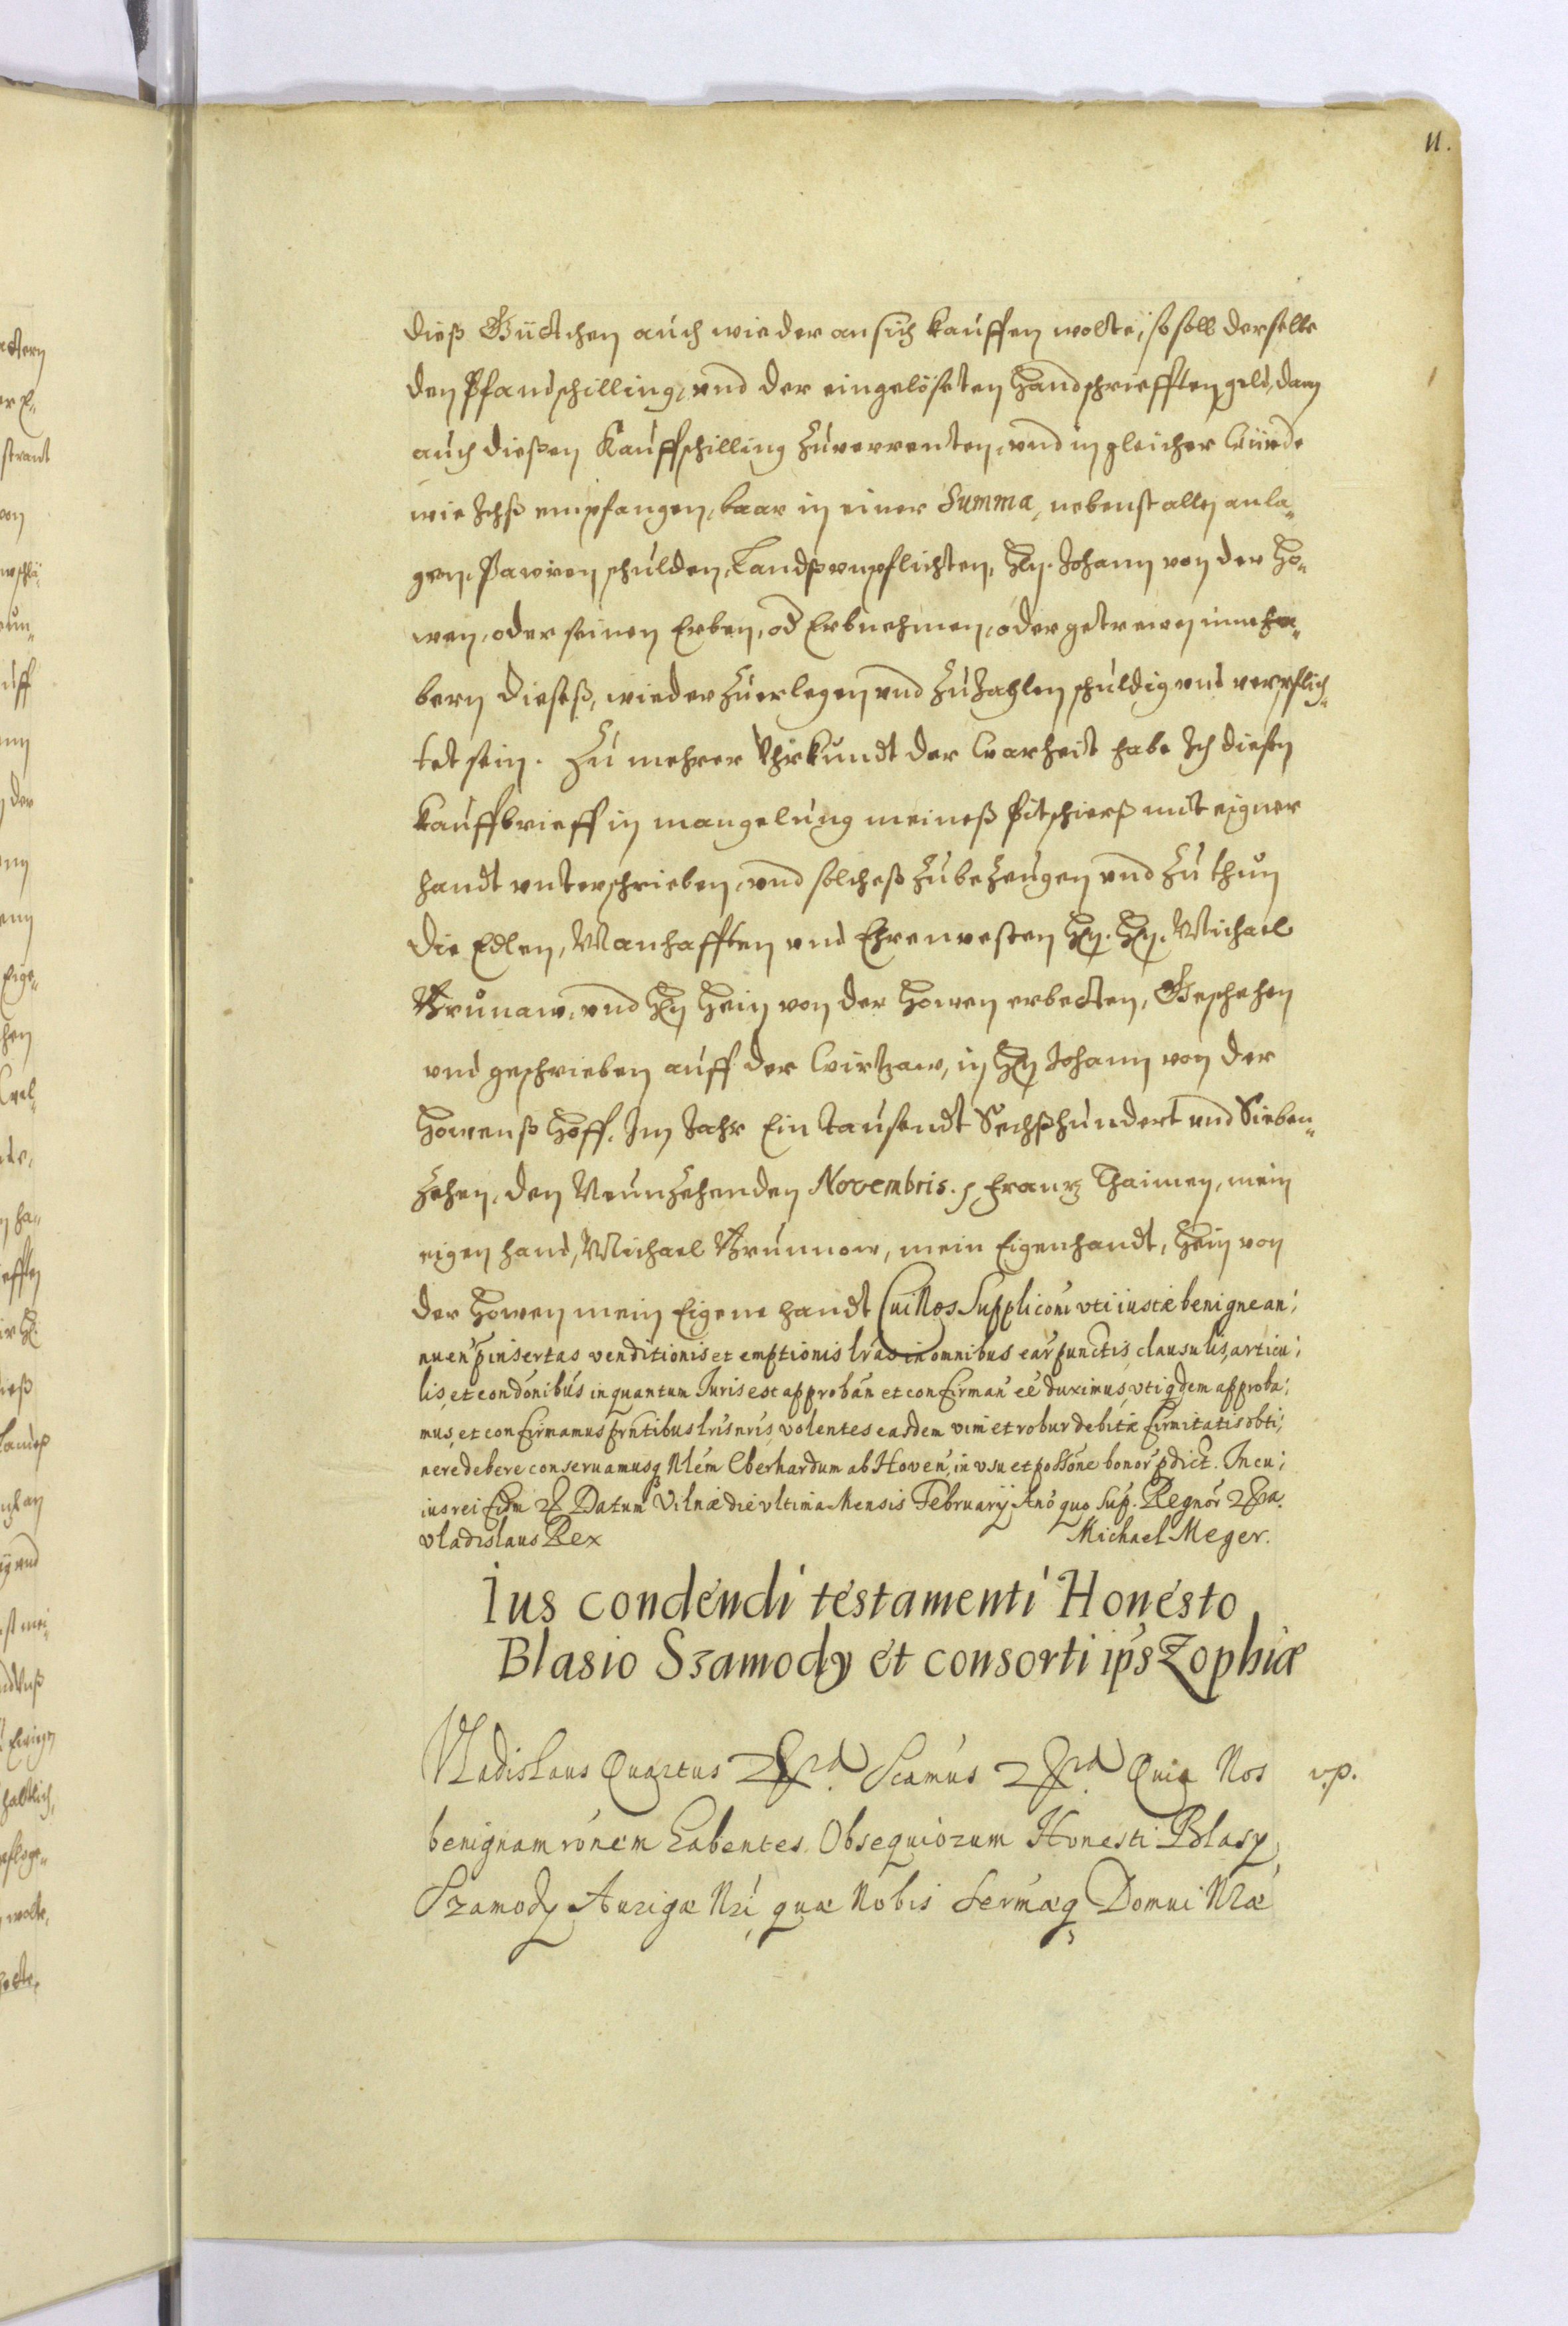 11.
dieß Güdtchen auch wieder an sich kauffen wolte, so soll derselbe
den Pfandschilling, und der eingelöseten Handschriefften geld, dan
auch dießen Kauffschilling zu verrenten, und in gleicher Würde
wie Ichß empfangen, baar in einer Summa, nebenst allen anla„
gen, Pawren schulden, Landß vnpflichten, Hn. Johann von der Ho„
wen, oder seinen Erben, od Erbnehmen, oder getrewen inneha„
bern dieseß, wieder zuerlegen und zuzahlen schuldig und verpflich„
tet sein. Zu mehrer Uhrkundt der Warheit habe Ich diesen
Kauffbrieff in mangelung meineß Pitschierß mit eigner
handt unterschrieben, und solcheß zubezeugen und zu thun
die Edlen, Manhafften und Ehrenvesten Hn. Hn. Michael
Brunaw, und Hn Hein von der Howen erbetten, Geschehen
und geschrieben auff der Wirtzaw, in Hn Johann von der
Howenß Hoff, Im Jahr Ein Tausendt Sechßhundert und Sieben„
zehen, den Neunzehenden Novembris. Frantz Thaimen, mein
eigen hand, Michael Brunnow, mein Eigenhandt, Hein von
der Howen mein Eigene handt Cui Nos Suppliconi vti iustæ benigne an,
nuen pinsertas venditionis et emptionis lras in omnibus ear punctis, clausulis, articu,
lis, et condonibus inquantum Iuris est approban et confirman ee duximus, vti qdem approba,
mus, et confirmamus prntibus lris nris, volentes easdem vim et robur debitæ firmitatis obti,
nere debere conseruamusq Nlem Eberhardum ab Hoven, in vsu et possone bonor pdict. In cu,
ius rei fidm &c Datum Vilnæ die vltima Mensis Februarij Ano quo sup. Regnor &ra.
Vladislaus Rex Michael Meger.
Ius condendi testamenti Honesto
Blasio Szamody et consorti ips Zophiæ
Vladislaus Quartus &ra. Scamus &ra Quia Nos v.p.
benignam ronem habentes Obsequiorum Honesti Blasy
Szamody Aurigæ Nri, quæ Nobis Sermæq Domui Nræ